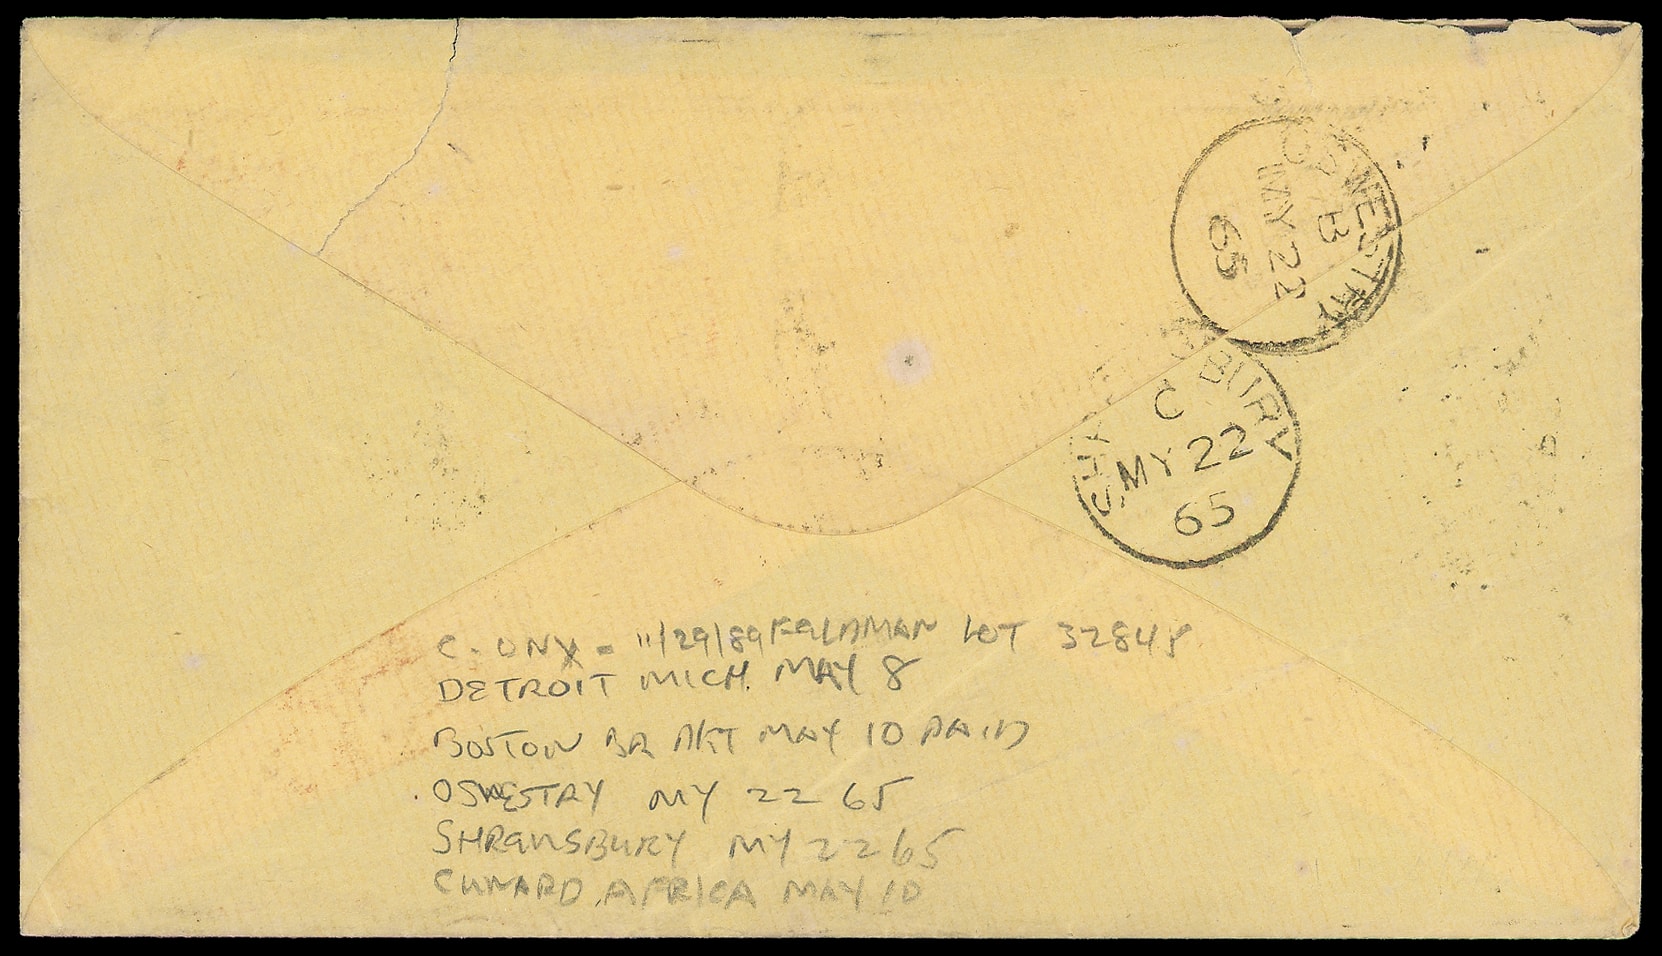 OSWESTRY
B
MY 22
65
SHREWSBURY
C
MY 22
65
C-ONX = 11/29/89 FELDMAN LOT 32848
DETROIT MICH. MAY 8
BOSTON BR PKT MAY 10 PAID
OSWESTRY MY 22 65
SHREWSBURY MY 22 65
CUNARD AFRICA MAY 10